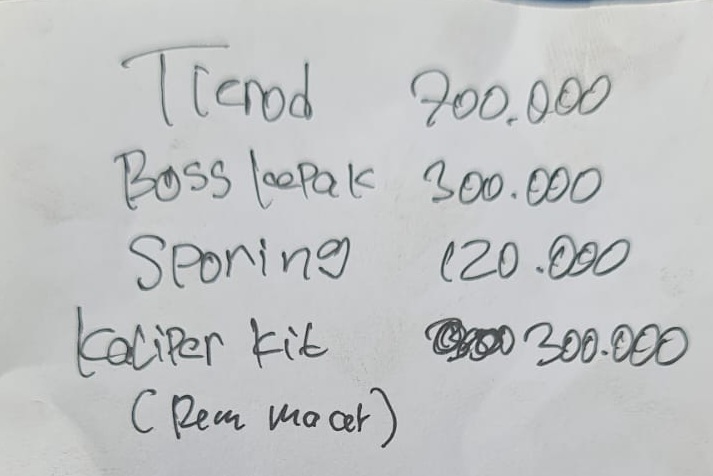 Tierod 700.000
Boss leepak 300.000
Sporing 120.000
Kaliper kit 300.000
(Rem macet)